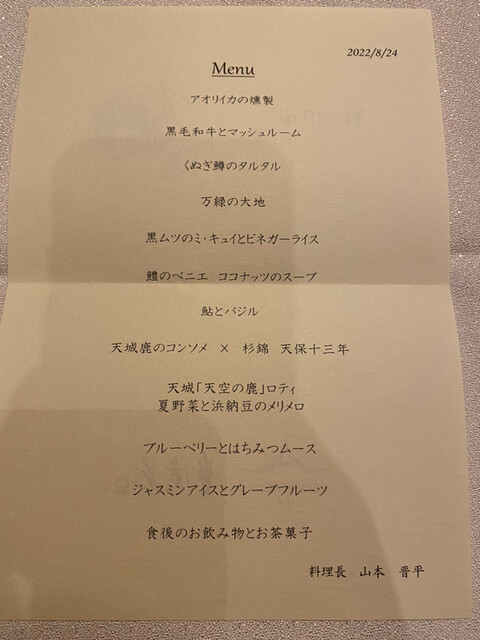 2022/8/24
Menu
アオリイカの燻製
黒毛和牛とマッシュルーム
くぬぎ鱒のタルタル
万緑の大地
黒ムツのミ・キュイとビネガーライス
鱧のベニエ ココナッツのスープ
鮎とバジル
天城鹿のコンソメ × 杉錦 天保十三年
天城「天空の鹿」ロティ
夏野菜と浜納豆のメリメロ
ブルーベリーとはちみつムース
ジャスミンアイスとグレープフルーツ
食後のお飲み物とお茶菓子
料理長 山本 晋平